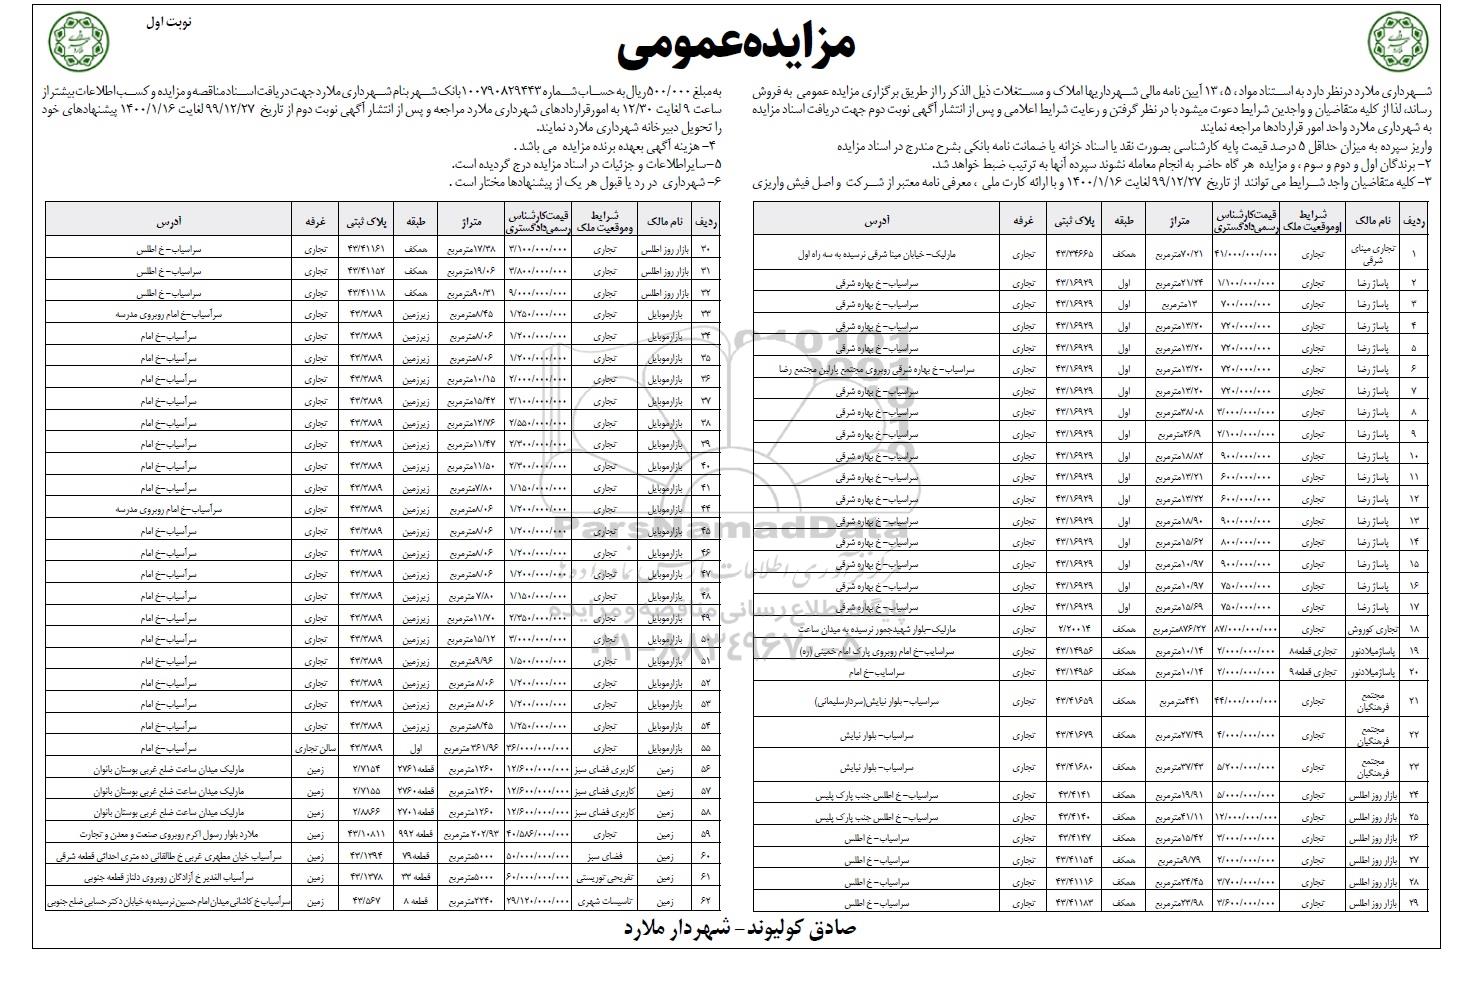 نوبت اول
مزایده عمومی
شهرداری ملارد درنظر دارد به استناد مواد ، ۵ ، ۱۳ آیین نامه مالی شهرداریها املاک و مستغلات ذیل الذکر را از طریق برگزاری مزایده عمومی به فروش
رساند، لذا از کلیه متقاضیان و واجدین شرایط دعوت میشود با در نظر گرفتن و رعایت شرایط اعلامی و پس از انتشار آگهی نوبت دوم جهت دریافت اسناد مزایده
به شهرداری ملارد واحد امور قراردادها مراجعه نمایند
واریز سپرده به میزان حداقل ۵ درصد قیمت پایه کارشناسی بصورت نقد یا اسناد خزانه یا ضمانت نامه بانکی بشرح مندرج در اسناد مزایده
۲- برندگان اول و دوم و سوم ، و مزایده هر گاه حاضر به انجام معامله نشوند سپرده آنها به ترتیب ضبط خواهد شد.
۳- کلیه متقاضیان واجد شرایط می توانند از تاریخ ۹۹/۱۲/۲۷ لغایت ۱۴۰۰/۱/۱۶ و با ارائه کارت ملی ، معرفی نامه معتبر از شرکت و اصل فیش واریزی
به مبلغ ۵۰۰/۰۰۰ریال به حساب شماره ۱۰۰۷۹۰۸۲۹۴۴۳ بانک شهر بنام شهرداری ملارد جهت دریافت اسناد مناقصه و مزایده و کسب اطلاعات بیشتر از
ساعت ۹ لغایت ۱۲/۳۰ به امور قراردادهای شهرداری ملارد مراجعه و پس از انتشار آگهی نوبت دوم از تاریخ ۹۹/۱۲/۲۷ لغایت ۱۴۰۰/۱/۱۶ پیشنهادهای خود
را تحویل دبیرخانه شهرداری ملارد نمایند.
۴- هزینه آگهی بعهده برنده مزایده می باشد .
۵-سایر اطلاعات و جزئیات در اسناد مزایده درج گردیده است.
۶- شهرداری در رد یا قبول هر یک از پیشنهادها مختار است .
ردیف نام مالک شرایط وموقعیت ملک قیمت کارشناس رسمی دادگستری متراژ طبقه پلاک ثبتی غرفه آدرس
۱ تجاری مینای شرقی تجاری ۴۱/۰۰۰/۰۰۰/۰۰۰ ۷۰/۲۱مترمربع همکف ۴۳/۳۴۶۶۵ تجاری مارلیک- خیابان مینا شرقی نرسیده به سه راه اول
۲ پاساژ رضا تجاری ۱/۱۰۰/۰۰۰/۰۰۰ ۲۱/۲۴مترمربع اول ۴۳/۱۶۹۲۹ تجاری سراسیاب- خ بهاره شرقی
۳ پاساژ رضا تجاری ۷۰۰/۰۰۰/۰۰۰ ۱۳مترمربع اول ۴۳/۱۶۹۲۹ تجاری سراسیاب- خ بهاره شرقی
۴ پاساژ رضا تجاری ۷۲۰/۰۰۰/۰۰۰ ۱۳/۲۰مترمربع اول ۴۳/۱۶۹۲۹ تجاری سراسیاب- خ بهاره شرقی
۵ پاساژ رضا تجاری ۷۲۰/۰۰۰/۰۰۰ ۱۳/۲۰مترمربع اول ۴۳/۱۶۹۲۹ تجاری سراسیاب- خ بهاره شرقی
۶ پاساژ رضا تجاری ۷۲۰/۰۰۰/۰۰۰ ۱۳/۲۰مترمربع اول ۴۳/۱۶۹۲۹ تجاری سراسیاب- خ بهاره شرقی روبروی مجتمع پارلین مجتمع رضا
۷ پاساژ رضا تجاری ۷۲۰/۰۰۰/۰۰۰ ۱۳/۲۰مترمربع اول ۴۳/۱۶۹۲۹ تجاری سراسیاب- خ بهاره شرقی
۸ پاساژ رضا تجاری ۳/۰۰۰/۰۰۰/۰۰۰ ۳۸/۰۸مترمربع اول ۴۳/۱۶۹۲۹ تجاری سراسیاب- خ بهاره شرقی
۹ پاساژ رضا تجاری ۲/۱۰۰/۰۰۰/۰۰۰ ۲۶/۹مترمربع اول ۴۳/۱۶۹۲۹ تجاری سراسیاب- خ بهاره شرقی
۱۰ پاساژ رضا تجاری ۹۰۰/۰۰۰/۰۰۰ ۱۸/۸۲مترمربع اول ۴۳/۱۶۹۲۹ تجاری سراسیاب- خ بهاره شرقی
۱۱ پاساژ رضا تجاری ۶۰۰/۰۰۰/۰۰۰ ۱۳/۲۱مترمربع اول ۴۳/۱۶۹۲۹ تجاری سراسیاب- خ بهاره شرقی
۱۲ پاساژ رضا تجاری ۶۰۰/۰۰۰/۰۰۰ ۱۳/۲۲مترمربع اول ۴۳/۱۶۹۲۹ تجاری سراسیاب- خ بهاره شرقی
۱۳ پاساژ رضا تجاری ۹۰۰/۰۰۰/۰۰۰ ۱۸/۹۰مترمربع اول ۴۳/۱۶۹۲۹ تجاری سراسیاب- خ بهاره شرقی
۱۴ پاساژ رضا تجاری ۸۰۰/۰۰۰/۰۰۰ ۱۵/۶۲مترمربع اول ۴۳/۱۶۹۲۹ تجاری سراسیاب- خ بهاره شرقی
۱۵ پاساژ رضا تجاری ۹۰۰/۰۰۰/۰۰۰ ۱۰/۹۷مترمربع اول ۴۳/۱۶۹۲۹ تجاری سراسیاب- خ بهاره شرقی
۱۶ پاساژ رضا تجاری ۷۵۰/۰۰۰/۰۰۰ ۱۰/۹۷مترمربع اول ۴۳/۱۶۹۲۹ تجاری سراسیاب- خ بهاره شرقی
۱۷ پاساژ رضا تجاری ۷۵۰/۰۰۰/۰۰۰ ۱۵/۶۹مترمربع اول ۴۳/۱۶۹۲۹ تجاری سراسیاب- خ بهاره شرقی
۱۸ تجاری کوروش تجاری ۸۷/۰۰۰/۰۰۰/۰۰۰ ۸۷۶/۲۲مترمربع همکف ۲/۲۰۰۱۴ تجاری مارلیک-بلوار شهیدجمور نرسیده به میدان ساعت
۱۹ پاساژمیلادنور تجاری قطعه۸ ۲/۰۰۰/۰۰۰/۰۰۰ ۱۰/۱۴مترمربع همکف ۴۳/۱۴۹۵۶ تجاری سراسایب-خ امام روبروی پارک امام خمینی (ره)
۲۰ پاساژمیلادنور تجاری قطعه۹ ۲/۰۰۰/۰۰۰/۰۰۰ ۱۰/۱۴مترمربع همکف ۴۳/۱۴۹۵۶ تجاری سراسایب-خ امام
۲۱ مجتمع فرهنگیان تجاری ۴۴/۰۰۰/۰۰۰/۰۰۰ ۴۴۱مترمربع همکف ۴۳/۴۱۶۵۹ تجاری سراسیاب- بلوار نیایش(سردارسلیمانی)
۲۲ مجتمع فرهنگیان تجاری ۴/۰۰۰/۰۰۰/۰۰۰ ۲۷/۴۹مترمربع همکف ۴۳/۴۱۶۷۹ تجاری سراسیاب- بلوار نیایش
۲۳ مجتمع فرهنگیان تجاری ۵/۲۰۰/۰۰۰/۰۰۰ ۳۷/۴۳مترمربع همکف ۴۳/۴۱۶۸۰ تجاری سراسیاب- بلوار نیایش
۲۴ بازار روز اطلس تجاری ۵/۰۰۰/۰۰۰/۰۰۰ ۱۹/۹۱مترمربع همکف ۴۳/۴۱۴۱ تجاری سراسیاب- خ اطلس جنب پارک پلیس
۲۵ بازار روز اطلس تجاری ۱۲/۰۰۰/۰۰۰/۰۰۰ ۴۱/۱۱مترمربع همکف ۴۳/۴۱۴۰ تجاری سراسیاب- خ اطلس جنب پارک پلیس
۲۶ بازار روز اطلس تجاری ۳/۰۰۰/۰۰۰/۰۰۰ ۱۵/۴۲مترمربع همکف ۴۳/۴۱۴۷ تجاری سراسیاب- خ اطلس
۲۷ بازار روز اطلس تجاری ۲/۰۰۰/۰۰۰/۰۰۰ ۹/۷۹مترمربع همکف ۴۳/۴۱۱۵۴ تجاری سراسیاب- خ اطلس
۲۸ بازار روز اطلس تجاری ۳/۷۰۰/۰۰۰/۰۰۰ ۲۴/۴۵مترمربع همکف ۴۳/۴۱۱۱۶ تجاری سراسیاب- خ اطلس
۲۹ بازار روز اطلس تجاری ۳/۶۰۰/۰۰۰/۰۰۰ ۲۳/۹۸مترمربع همکف ۴۳/۴۱۱۸۳ تجاری سراسیاب- خ اطلس
ردیف نام مالک شرایط وموقعیت ملک قیمت کارشناس رسمی دادگستری متراژ طبقه پلاک ثبتی غرفه آدرس
۳۰ بازار روز اطلس تجاری ۳/۱۰۰/۰۰۰/۰۰۰ ۱۷/۳۸مترمربع همکف ۴۳/۴۱۱۶۱ تجاری سراسیاب- خ اطلس
۳۱ بازار روز اطلس تجاری ۳/۸۰۰/۰۰۰/۰۰۰ ۱۹/۰۶مترمربع همکف ۴۳/۴۱۱۵۲ تجاری سراسیاب- خ اطلس
۳۲ بازار روز اطلس تجاری ۹/۰۰۰/۰۰۰/۰۰۰ ۹۰/۳۱مترمربع همکف ۴۳/۴۱۱۱۸ تجاری سراسیاب- خ اطلس
۳۳ بازارموبایل تجاری ۱/۲۵۰/۰۰۰/۰۰۰ ۸/۴۵مترمربع زیرزمین ۴۳/۳۸۸۹ تجاری سرآسیاب-خ امام روبروی مدرسه
۳۴ بازارموبایل تجاری ۱/۲۰۰/۰۰۰/۰۰۰ ۸/۰۶مترمربع زیرزمین ۴۳/۳۸۸۹ تجاری سرآسیاب-خ امام
۳۵ بازارموبایل تجاری ۱/۲۰۰/۰۰۰/۰۰۰ ۸/۰۶مترمربع زیرزمین ۴۳/۳۸۸۹ تجاری سرآسیاب-خ امام
۳۶ بازارموبایل تجاری ۲/۰۰۰/۰۰۰/۰۰۰ ۱۰/۱۵مترمربع زیرزمین ۴۳/۳۸۸۹ تجاری سرآسیاب-خ امام
۳۷ بازارموبایل تجاری ۳/۱۰۰/۰۰۰/۰۰۰ ۱۵/۴۲مترمربع زیرزمین ۴۳/۳۸۸۹ تجاری سرآسیاب-خ امام
۳۸ بازارموبایل تجاری ۲/۵۵۰/۰۰۰/۰۰۰ ۱۲/۷۶مترمربع زیرزمین ۴۳/۳۸۸۹ تجاری سرآسیاب-خ امام
۳۹ بازارموبایل تجاری ۲/۳۰۰/۰۰۰/۰۰۰ ۱۱/۴۷مترمربع زیرزمین ۴۳/۳۸۸۹ تجاری سرآسیاب-خ امام
۴۰ بازارموبایل تجاری ۲/۳۰۰/۰۰۰/۰۰۰ ۱۱/۵۰مترمربع زیرزمین ۴۳/۳۸۸۹ تجاری سرآسیاب-خ امام
۴۱ بازارموبایل تجاری ۱/۱۵۰/۰۰۰/۰۰۰ ۷/۸۰مترمربع زیرزمین ۴۳/۳۸۸۹ تجاری سرآسیاب-خ امام
۴۴ بازارموبایل تجاری ۱/۲۰۰/۰۰۰/۰۰۰ ۸/۰۶مترمربع زیرزمین ۴۳/۳۸۸۹ تجاری سرآسیاب-خ امام روبروی مدرسه
۴۵ بازارموبایل تجاری ۱/۲۰۰/۰۰۰/۰۰۰ ۸/۰۶مترمربع زیرزمین ۴۳/۳۸۸۹ تجاری سرآسیاب-خ امام
۴۶ بازارموبایل تجاری ۱/۲۰۰/۰۰۰/۰۰۰ ۸/۰۶مترمربع زیرزمین ۴۳/۳۸۸۹ تجاری سرآسیاب-خ امام
۴۷ بازارموبایل تجاری ۱/۲۰۰/۰۰۰/۰۰۰ ۸/۰۶مترمربع زیرزمین ۴۳/۳۸۸۹ تجاری سرآسیاب-خ امام
۴۸ بازارموبایل تجاری ۱/۱۵۰/۰۰۰/۰۰۰ ۷/۸۰ مترمربع زیرزمین ۴۳/۳۸۸۹ تجاری سرآسیاب-خ امام
۴۹ بازارموبایل تجاری ۲/۳۵۰/۰۰۰/۰۰۰ ۱۱/۷۰مترمربع زیرزمین ۴۳/۳۸۸۹ تجاری سرآسیاب-خ امام
۵۰ بازارموبایل تجاری ۳/۰۰۰/۰۰۰/۰۰۰ ۱۵/۱۲مترمربع زیرزمین ۴۳/۳۸۸۹ تجاری سرآسیاب-خ امام
۵۱ بازارموبایل تجاری ۱/۵۰۰/۰۰۰/۰۰۰ ۹/۹۶مترمربع زیرزمین ۴۳/۳۸۸۹ تجاری سرآسیاب-خ امام
۵۲ بازارموبایل تجاری ۱/۲۰۰/۰۰۰/۰۰۰ ۸/۰۶ مترمربع زیرزمین ۴۳/۳۸۸۹ تجاری سرآسیاب-خ امام
۵۳ بازارموبایل تجاری ۱/۲۰۰/۰۰۰/۰۰۰ ۸/۰۶ مترمربع زیرزمین ۴۳/۳۸۸۹ تجاری سرآسیاب-خ امام
۵۴ بازارموبایل تجاری ۱/۲۵۰/۰۰۰/۰۰۰ ۸/۴۵مترمربع زیرزمین ۴۳/۳۸۸۹ تجاری سرآسیاب-خ امام
۵۵ بازارموبایل تجاری ۳۶/۰۰۰/۰۰۰/۰۰۰ ۳۶۱/۹۶ مترمربع اول ۴۳/۳۸۸۹ سالن تجاری سرآسیاب-خ امام
۵۶ زمین کاربری فضای سبز ۱۲/۶۰۰/۰۰۰/۰۰۰ ۱۲۶۰مترمربع قطعه۲۷۶۱ ۲/۷۱۵۴ زمین مارلیک میدان ساعت ضلع غربی بوستان بانوان
۵۷ زمین کاربری فضای سبز ۱۲/۶۰۰/۰۰۰/۰۰۰ ۱۲۶۰مترمربع قطعه۲۷۶۰ ۲/۷۱۵۵ زمین مارلیک میدان ساعت ضلع غربی بوستان بانوان
۵۸ زمین کاربری فضای سبز ۱۲/۶۰۰/۰۰۰/۰۰۰ ۱۲۶۰مترمربع قطعه۲۷۰۱ ۲/۸۸۶۶ زمین مارلیک میدان ساعت ضلع غربی بوستان بانوان
۵۹ زمین تجاری ۴۰/۵۸۶/۰۰۰/۰۰۰ ۲۰۲/۹۳ مترمربع قطعه ۹۹۲ ۴۳/۱۰۸۱۱ زمین ملارد بلوار رسول اکرم روبروی صنعت و معدن و تجارت
۶۰ زمین فضای سبز ۵۰/۰۰۰/۰۰۰/۰۰۰ ۵۰۰۰مترمربع قطعه۷۹ ۴۳/۱۳۹۴ زمین سرآسیاب خیان مطهری غربی خ طالقانی ده متری احداثی قطعه شرقی
۶۱ زمین تفریحی توریستی ۶۰/۰۰۰/۰۰۰/۰۰۰ ۵۰۰۰مترمربع قطعه ۳۳ ۴۳/۱۳۷۸ زمین سرآسیاب الغدیر خ آزادگان روبروی دلناز قطعه جنوبی
۶۲ زمین تاسیسات شهری ۲۹/۱۲۰/۰۰۰/۰۰۰ ۲۲۴۰مترمربع قطعه ۸ ۴۳/۵۶۷ زمین سرآسیاب خ کاشانی میدان امام حسین نرسیده به خیابان دکتر حسابی ضلع جنوبی
صادق کولیوند- شهردار ملارد
ParsNamadData
پایگاه اطلاع رسانی مناقصه و مزایده
۰۲۱-۸۸۳۴۹۶۷۰-۵